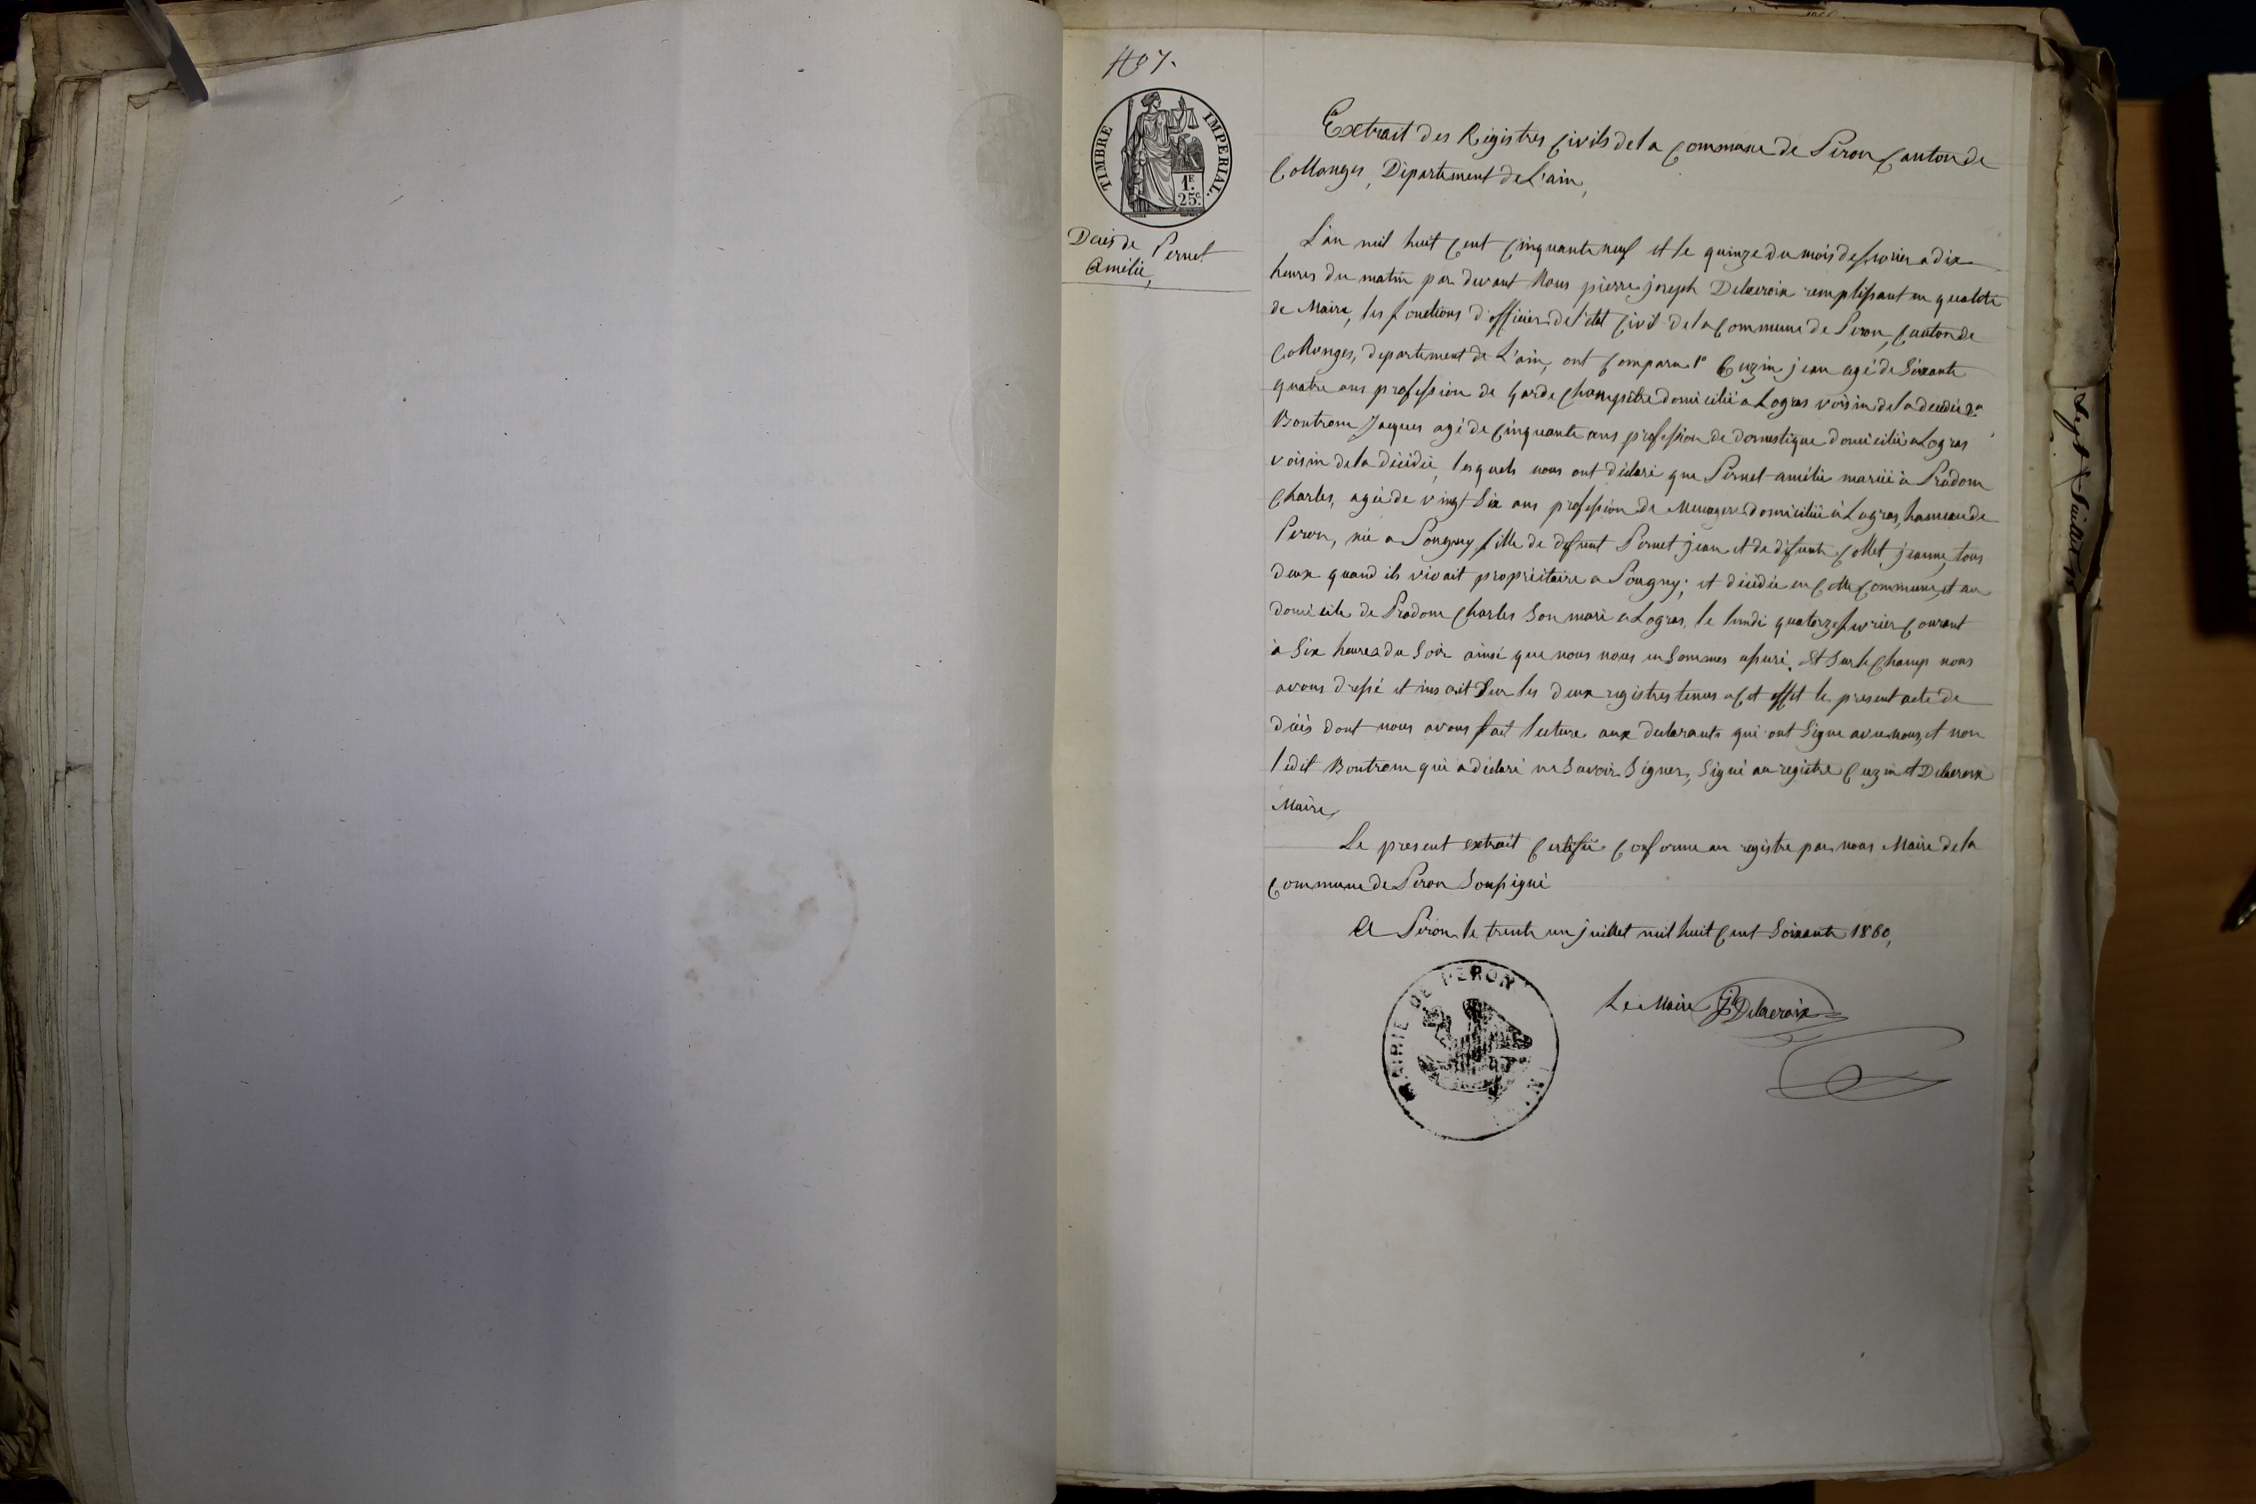 TIMBRE IMPERIAL.
1F.
25c.
Décès de Pernet
Amélie,
Extrait des Régistres Civils de la Commune de Peron Canton de
Collonges, Département de L'ain,
L'an mil huit Cent Cinquante neuf et le quinze du mois de fevrier a dix
heures du matin par devant Nous pierre joseph Delacroix remplissant en qualité
de Maire, les fonctions d'officier de l'état Civil de la Commune de Peron, Canton de
Collonges, departement de L'ain, ont Comparu 1° Cuzin jean agé de Soixante
quatre ans profession de garde Champêtre domicilié a Logras voisin de la décédée 2°
Boutrone Jacques agé de Cinquante ans profession de domestique domicilié a Logras
voisin de la décédée, lesquels nous ont déclaré que Pernet amélie mariée à Pradom
Charles, agée de vingt Six ans profession de Menagere domiciliée à Logras, hameau de
Peron, née a Pougny fille de défunt Pernet jean et de défunte Collet jeanne, tous
deux quand ils vivait propriétaire a Pougny; et décédée en Cette Commune, et au
domicile de Pradom Charles Son mari a Logras, le lundi quatorze fevrier Courant
à Six heures du Soir ainsi que nous nous en Sommes assuré. Et Sur le Champ nous
avons dressé et inscrit Sur les deux registres tenus a Cet effet le present acte de
décès dont nous avons fait lecture aux declarants qui ont Signé avec nous, et non
ledit Boutrone qui a déclaré ne Savoir Signer, Signé au registre Cuzin et Delacroix
Maire,
Le present extrait Certifié Conforme au registre par nous Maire de la
Commune de Peron Soussigné
A Peron le trente un juillet mil huit Cent Soixante 1860,
Le Maire Delacroix
MAIRIE DE PERON